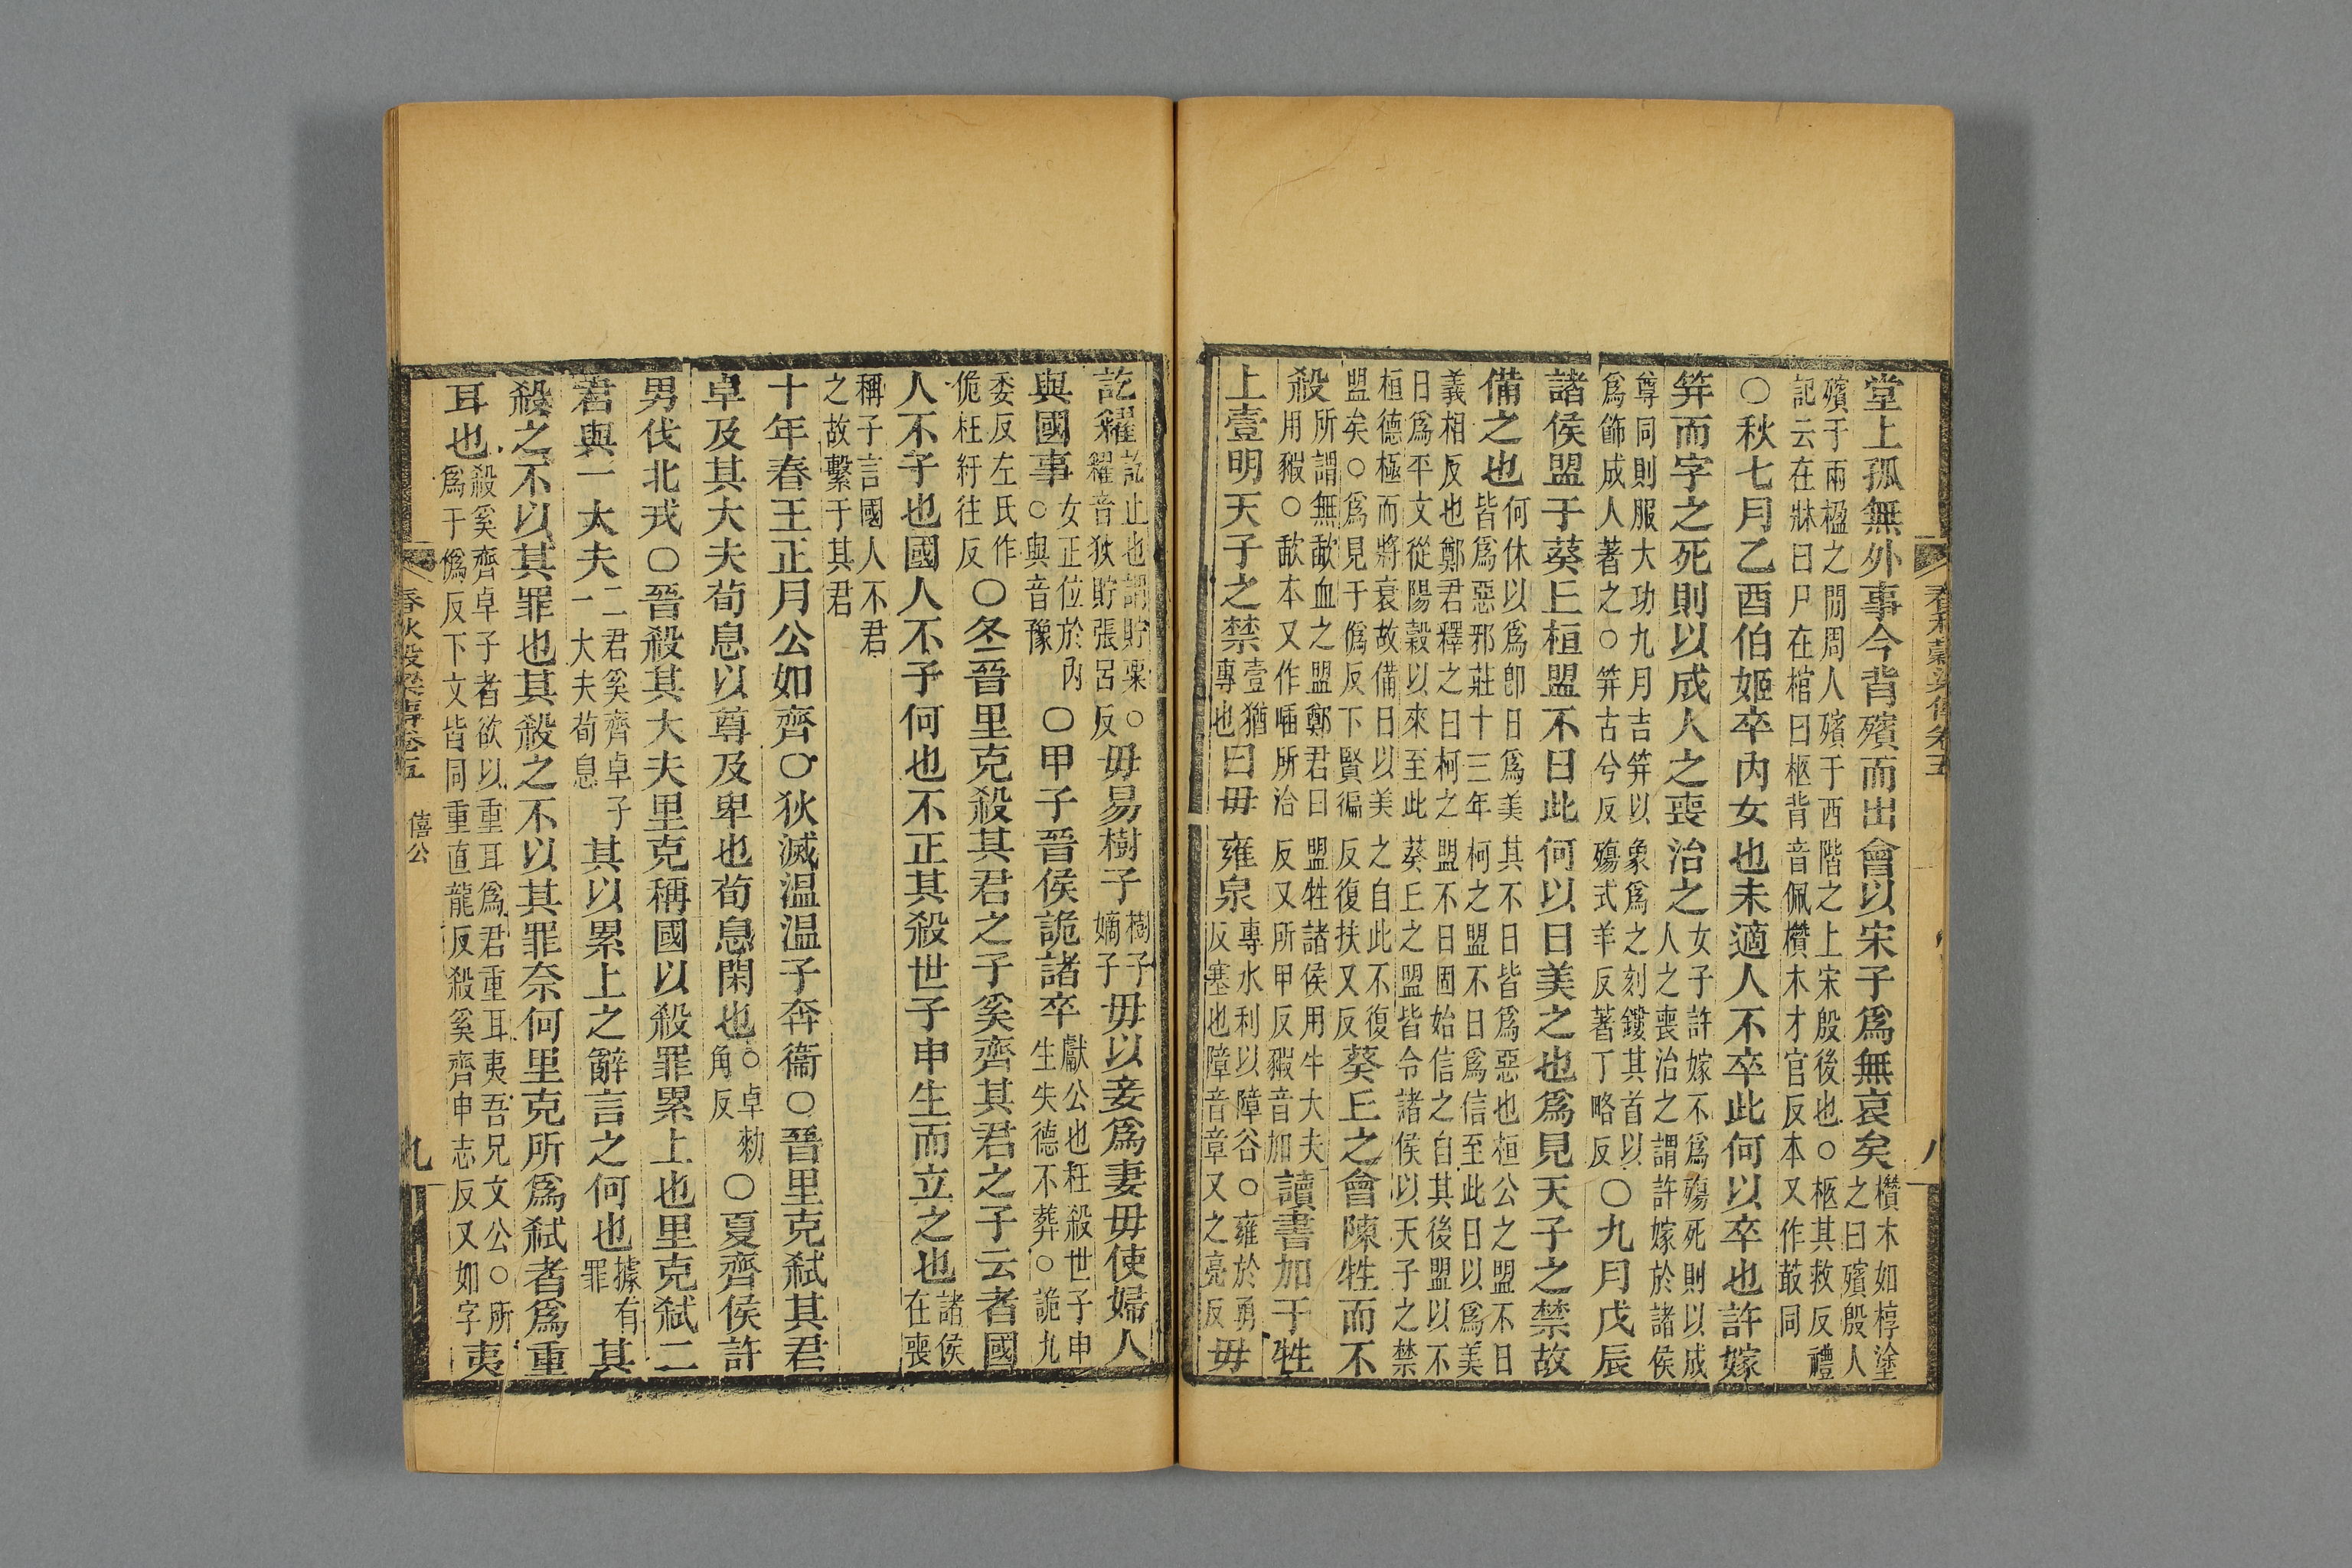 春秋穀梁傳卷五 八
堂上孤無外事今背殯而出會以宋子爲無哀矣欑木如椁塗之曰殯殷人
殯于兩楹之閒周人殯于西階之上宋殷後也○柩其救反禮記云在牀曰尸在棺曰柩背音佩欑木才官反本又作菆同
○秋七月乙酉伯姬卒內女也未適人不卒此何以卒也許嫁
笄而字之死則以成人之喪治之女子許嫁不爲殤死則以成人之喪治之謂許嫁於諸侯
尊同則服大功九月吉笄以象爲之刻鏤其首以爲飾成人著之○笄古兮反殤式羊反著丁略反○九月戊辰
諸侯盟于葵丘桓盟不日此何以日美之也爲見天子之禁故
備之也何休以爲卽日爲美其不日皆爲惡也桓公之盟不日皆爲惡邪莊十三年柯之盟不日爲信至此日以爲美
義相反也鄭君釋之曰柯之盟不日固始信之自其後盟以不日爲平文從陽穀以來至此葵丘之盟皆令諸侯以天子之禁
桓德極而將衰故備日以美之自此不復盟矣○爲見于僞反下賢徧反復扶又反葵丘之會陳牲而不
殺所謂無歃血之盟鄭君曰盟牲諸侯用牛大夫用豭○歃本又作唾所洽反又所甲反豭音加讀書加于牲
上壹明天子之禁壹猶專也曰毋雍泉專水利以障谷○雍於勇反塞也障音章又之亮反毋
訖糴訖止也謂貯粟○糴音狄貯張呂反毋易樹子樹子嫡子毋以妾爲妻毋使婦人
與國事女正位於內○與音豫○甲子晉侯詭諸卒獻公也枉殺世子申生失德不葬○詭九
委反左氏作佹枉紆往反○冬晉里克殺其君之子奚齊其君之子云者國
人不子也國人不子何也不正其殺世子申生而立之也諸侯在喪
稱子言國人不君之故繫于其君
十年春王正月公如齊○狄滅溫溫子奔衞○晉里克弒其君
卓及其大夫荀息以尊及卑也荀息閑也○卓勑角反○夏齊侯許
男伐北戎○晉殺其大夫里克稱國以殺罪累上也里克弒二
君與一大夫二君奚齊卓子一大夫荀息其以累上之辭言之何也據有罪其
殺之不以其罪也其殺之不以其罪奈何里克所爲弒者爲重
耳也殺奚齊卓子者欲以重耳爲君重耳夷吾兄文公○所爲于僞反下文皆同重直龍反殺奚齊申志反又如字夷
春秋穀梁傳卷五 僖公 九